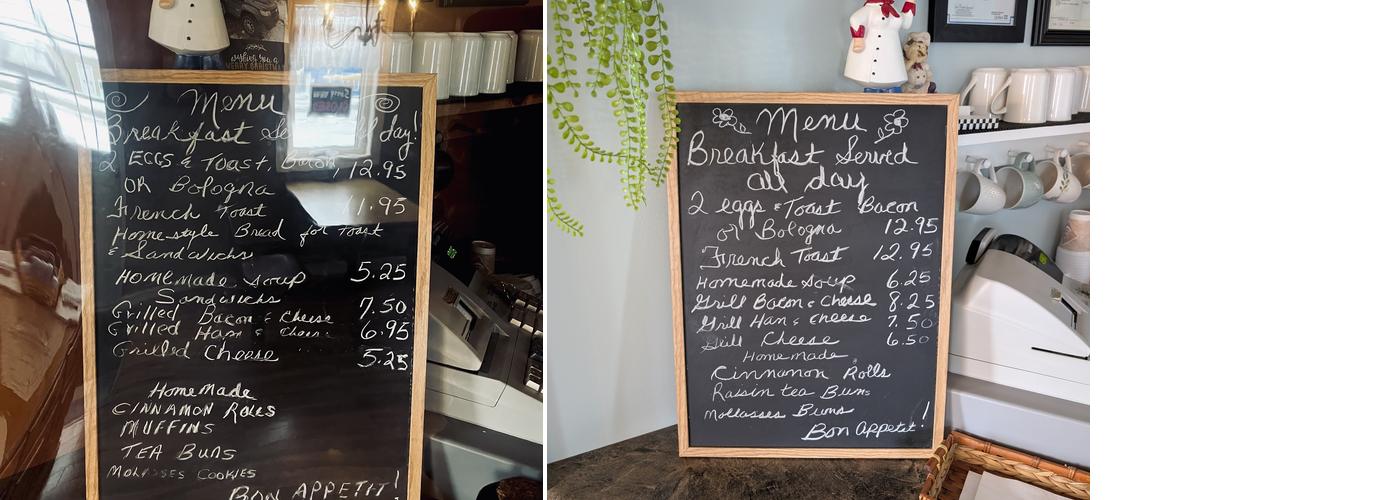 WISHING YOU A
MERRY CHRISTMAS
Menu
Breakfast Se all day!
2 EGGS & Toast, Bacon 12.95
OR Bologna
French Toast 11.95
Homestyle Bread for Toast
& Sandwichs
HOMEmade Soup 5.25
Sandwichs
Grilled Bacon & Cheese 7.50
Grilled Ham & Cheese 6.95
Grilled Cheese 5.25
HomeMade
CINNAMON Rolls
MUFFINS
TEA BUNS
MOLASSES COOKIES
BON APPETIT!
Menu
Breakfast Served
all day
2 eggs & Toast Bacon
or Bologna 12.95
French Toast 12.95
Homemade Soup 6.25
Grill Bacon & Cheese 8.25
Grill Ham & Cheese 7.50
Grill Cheese 6.50
Homemade
Cinnamon Rolls
Raisin tea Buns
Mollasses Buns
Bon Appetit!